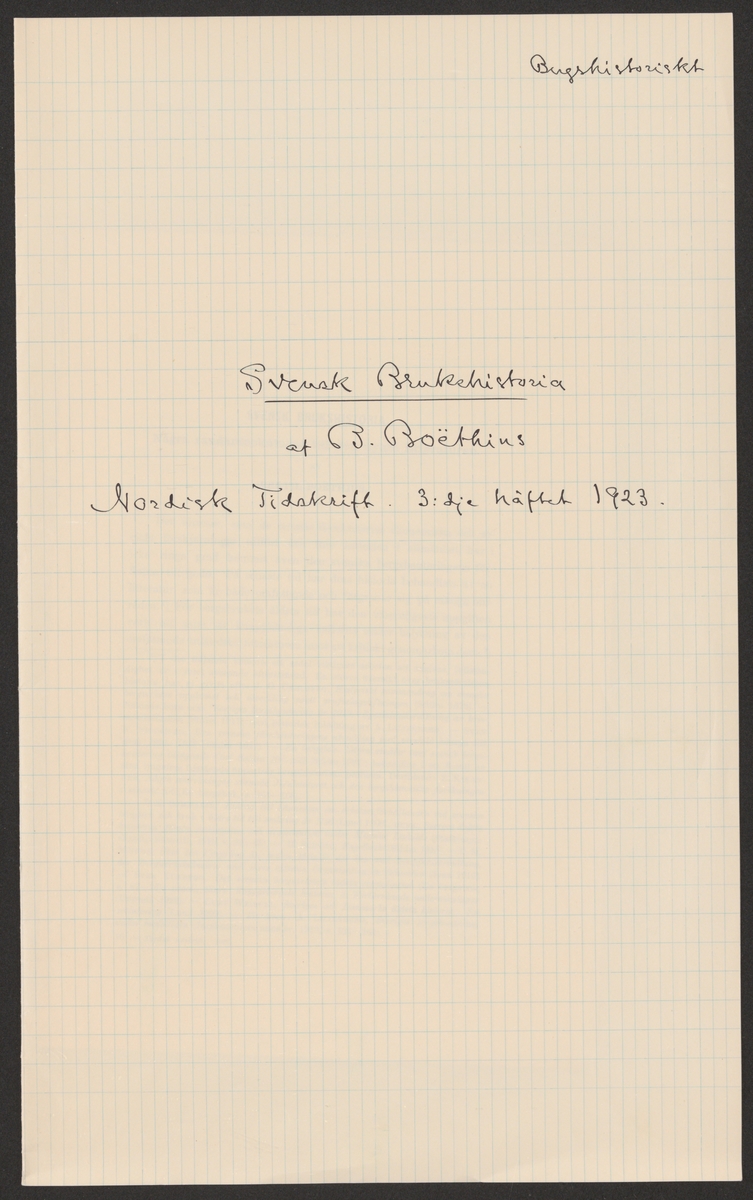 Bergshistoriskt
Svensk Brukshistoria
af B. Boëthius
Nordisk Tidskrift. 3:dje häftet 1923.